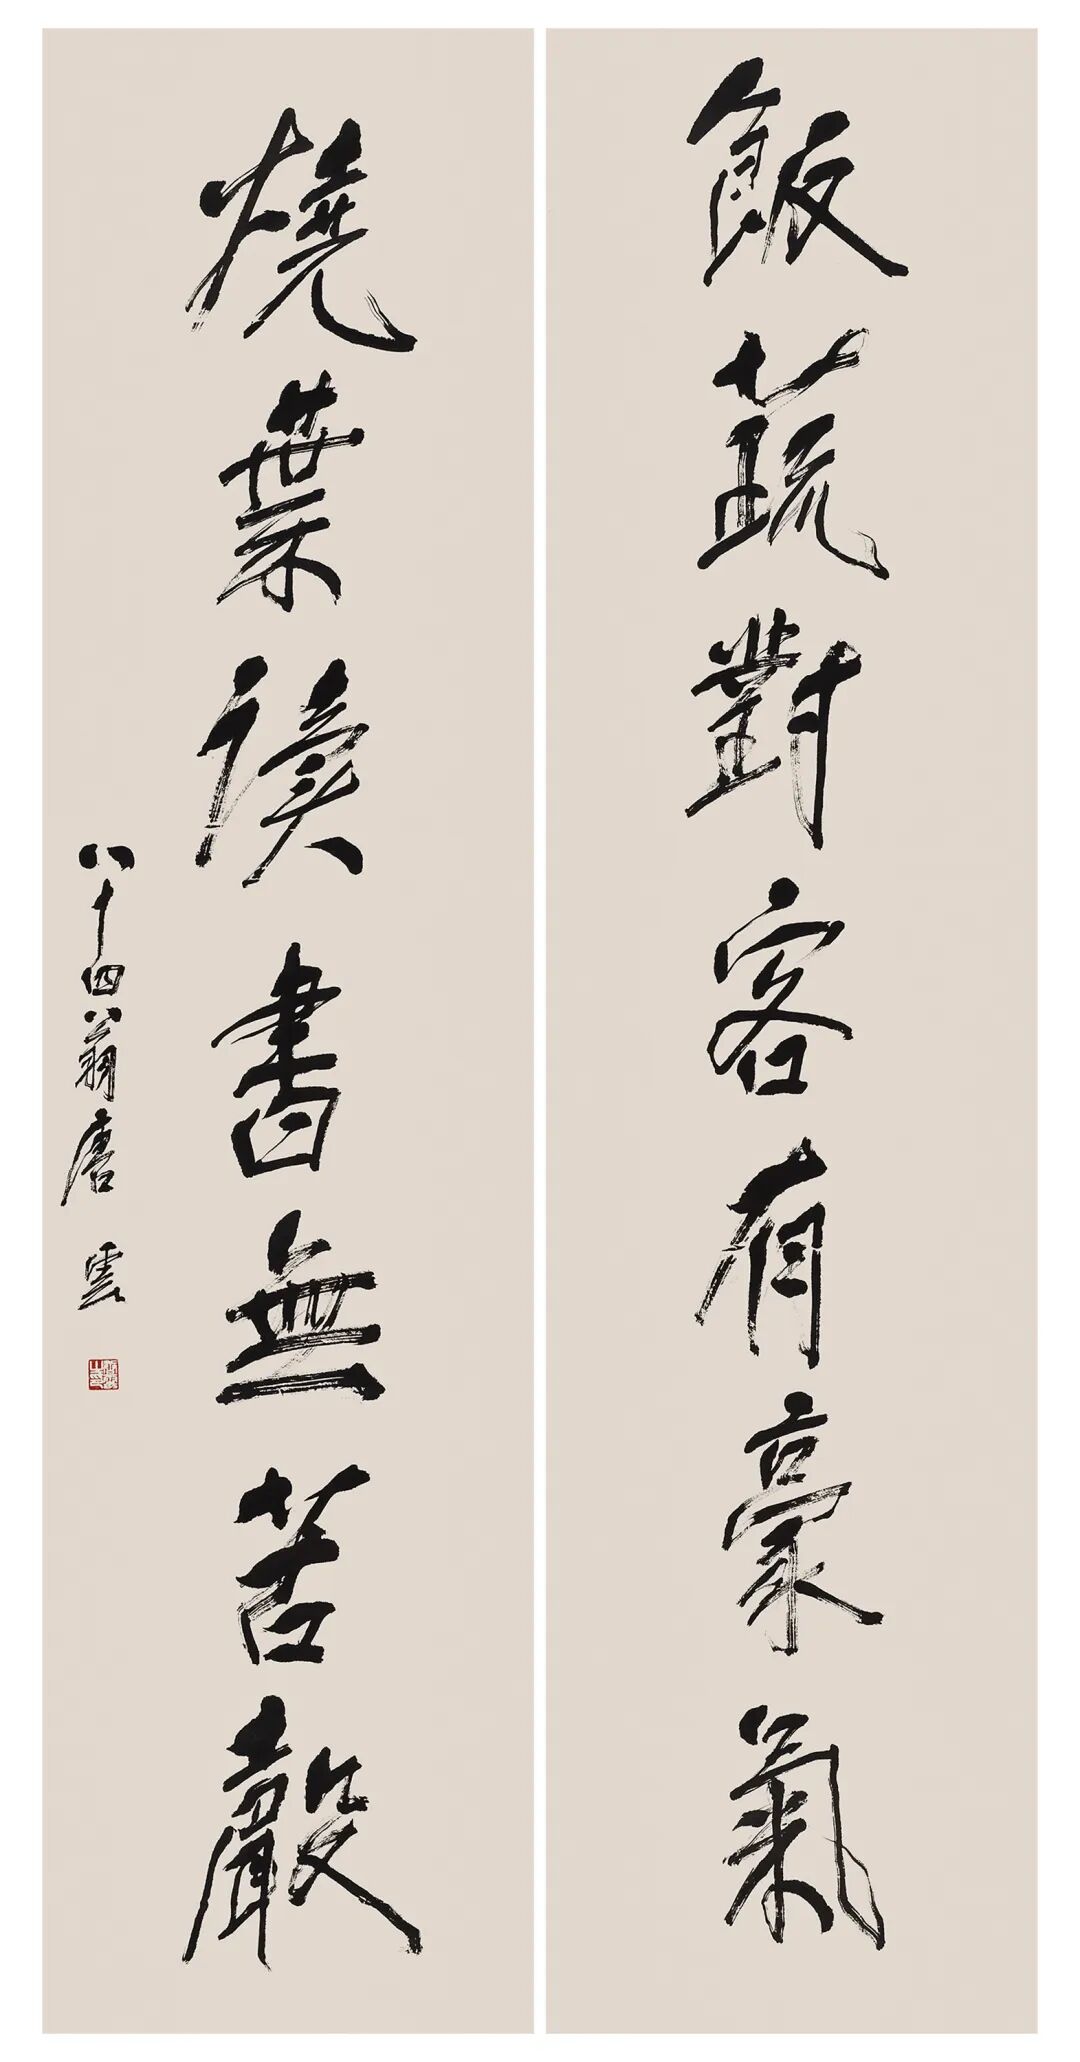 飯蔬對客有豪氣
燒葉讀書無苦聲
八十四翁唐雲